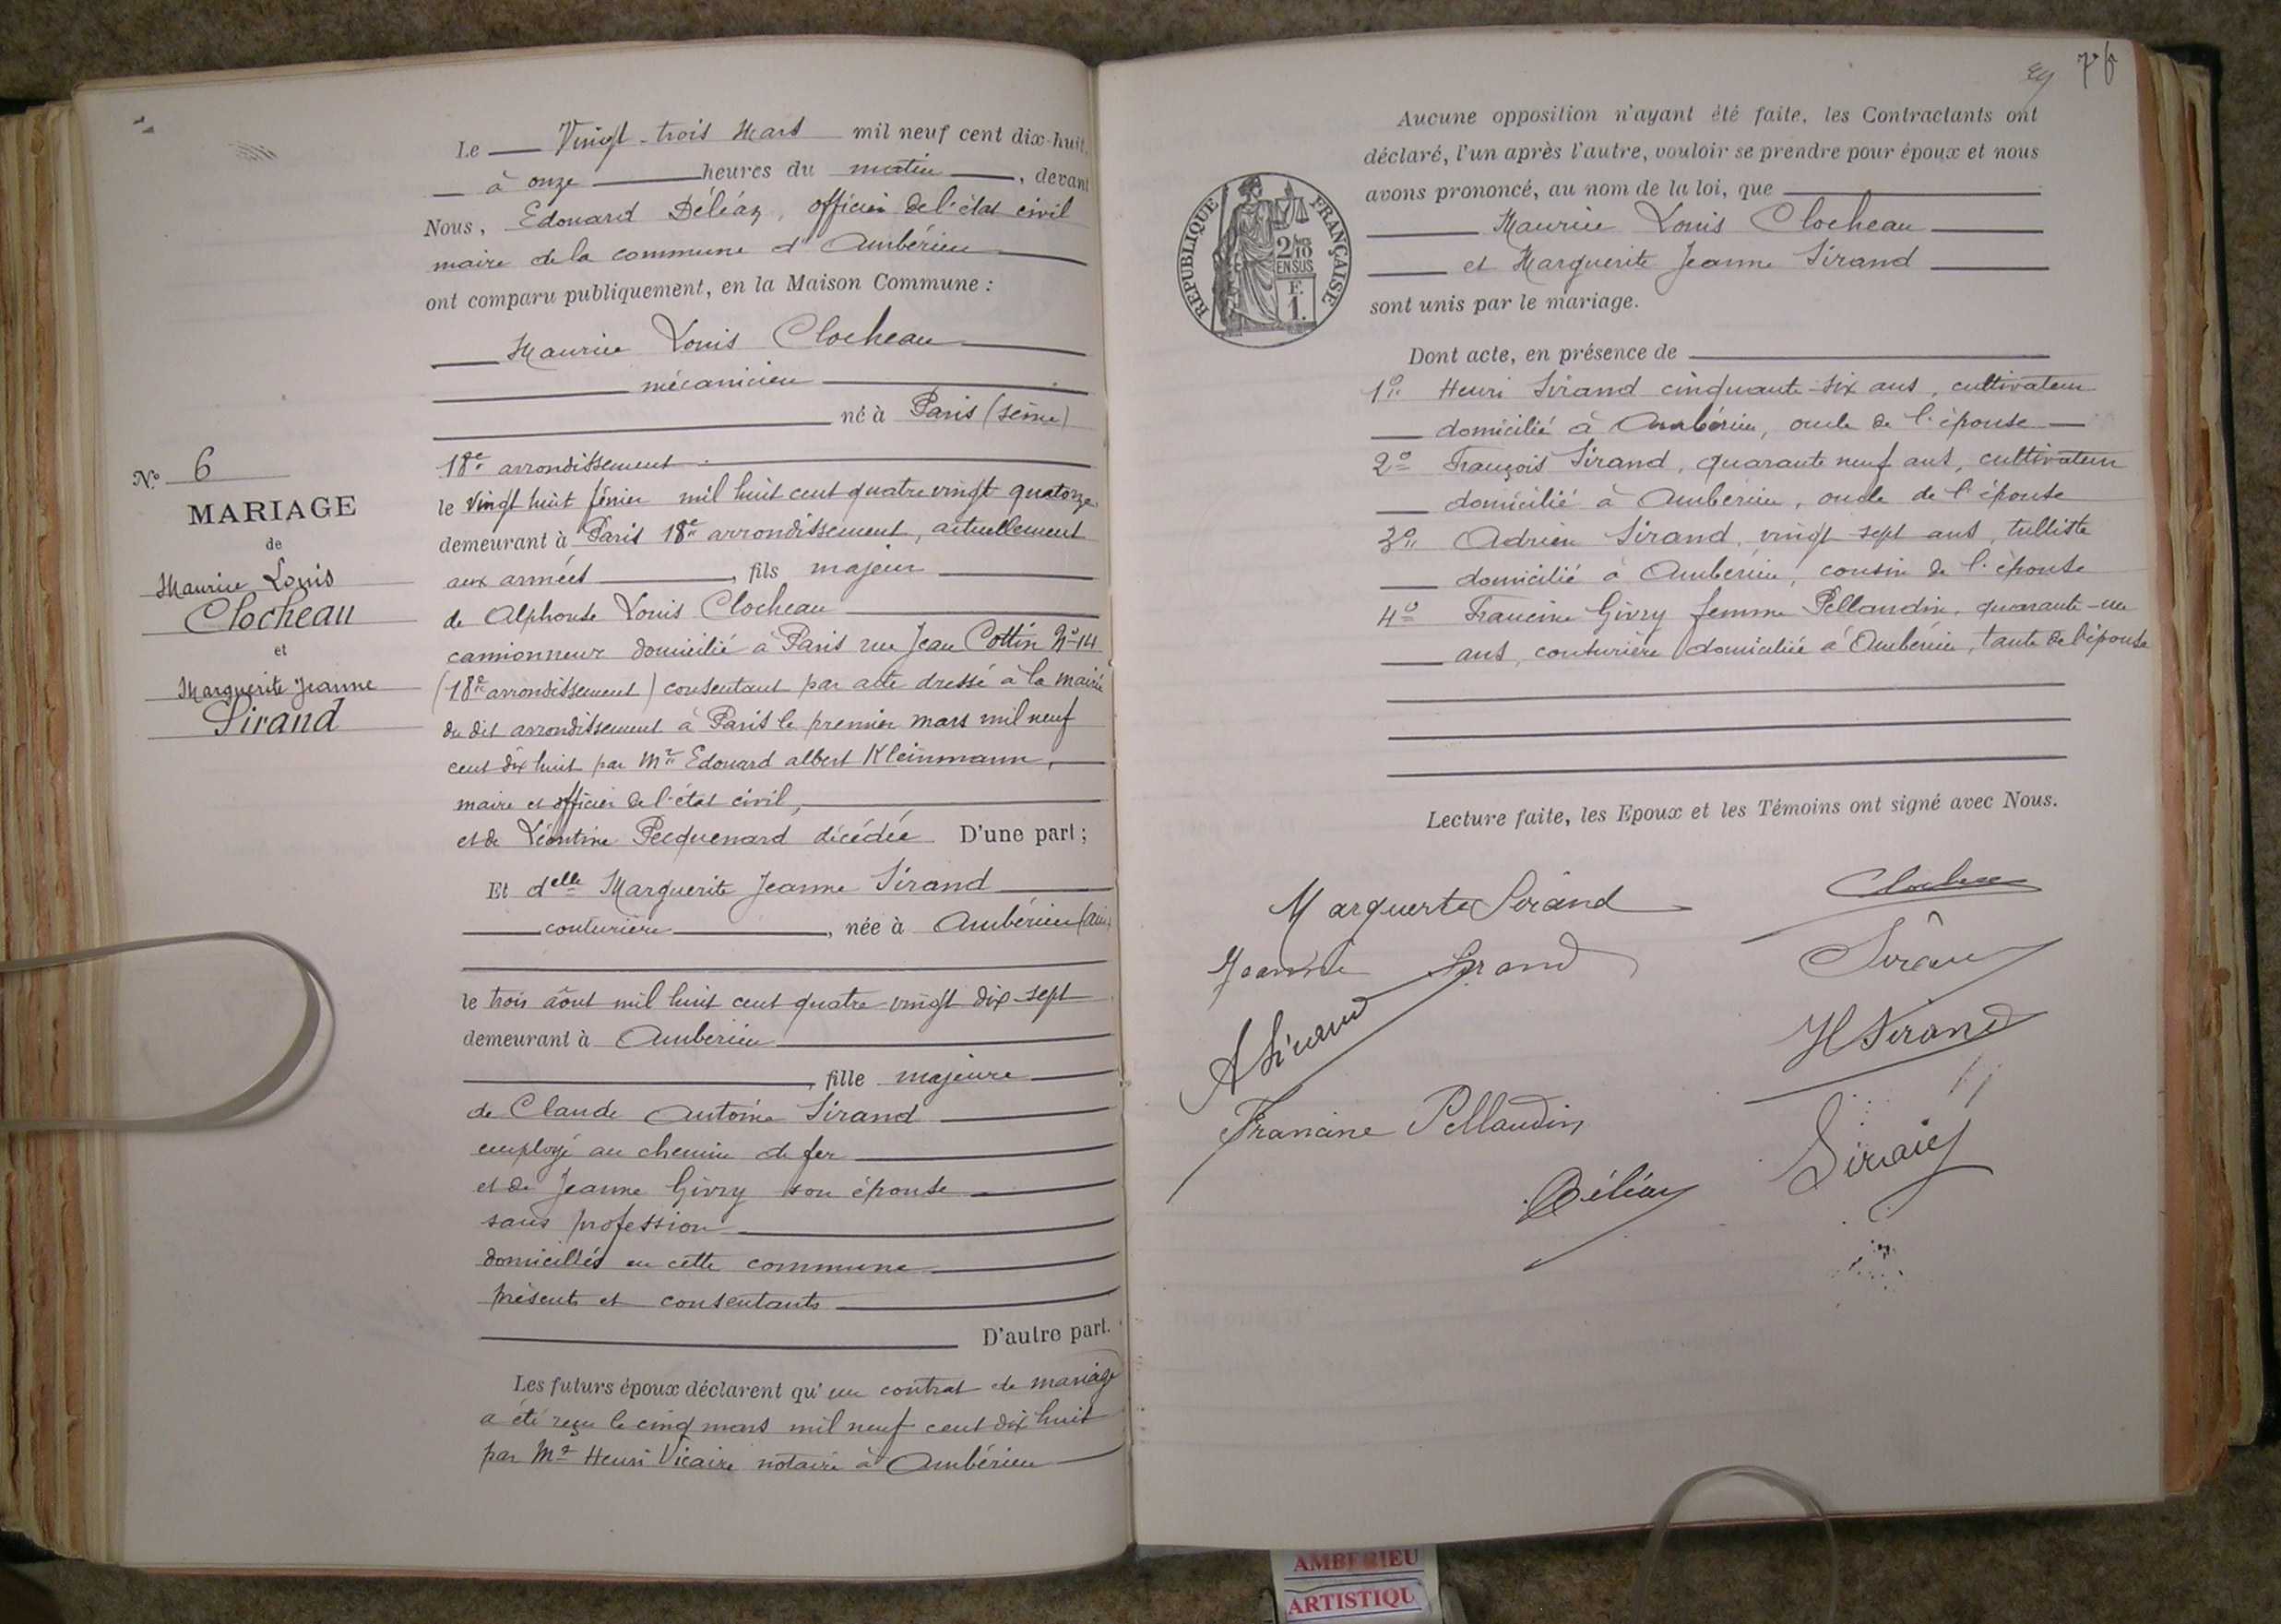 N.º 6
MARIAGE
de
Maurice Louis
Clocheau
et
Marguerite Jeanne
Sirand
Le Vingt-trois Mars mil neuf cent dix-huit,
à onze heures du matin, devant
Nous, Edouard Déléaz, officier de l'état civil
maire de la commune d'Ambérieu
ont comparu publiquement, en la Maison Commune :
Maurice Louis Clocheau
mécanicien
né à Paris (seine)
18e arrondissement
le vingt huit février mil huit cent quatre vingt quatorze
demeurant à Paris 18e arrondissement, actuellement
aux armées, fils majeur
de Alphonse Louis Clocheau
camionneur domicilié à Paris rue Jean Cottin Nº 14
(18e arrondissement) consentant par acte dressé à la mairie
du dit arrondissement à Paris le premier mars mil neuf
cent dix huit par Mr Edouard albert Kleinmann,
maire et officier de l'état civil,
et de Léontine Pecquenard décédée D'une part ;
Et delle Marguerite Jeanne Sirand
couturière, née à Ambérieu (ain)
le trois août mil huit cent quatre-vingt dix-sept
demeurant à Ambérieu
, fille majeure
de Claude Antoine Sirand
employé au chemin de fer
et de Jeanne Givry son épouse
sans profession
domiciliés en cette commune
présents et consentants
D'autre part.
Les futurs époux déclarent qu'un contrat de mariage
a été reçu le cinq mars mil neuf cent dix huit
par Me Henri Vicaire notaire à Ambérieu
76
Aucune opposition n'ayant été faite, les Contractants ont
déclaré, l'un après l'autre, vouloir se prendre pour époux et nous
avons prononcé, au nom de la loi, que
Maurice Louis Clocheau
et Marguerite Jeanne Sirand
sont unis par le mariage.
REPUBLIQUE FRANÇAISE
2/10
EN SUS
F.
1.
Dont acte, en présence de
1º Henri Sirand cinquante-six ans, cultivateur
domicilié à Ambérieu, oncle de l'épouse
2º François Sirand, quarante neuf ans, cultivateur
domicilié à Ambérieu, oncle de l'épouse
3º Adrien Sirand, vingt-sept ans, tulliste
domicilié à Ambérieu, cousin de l'épouse
4º Francine Givry femme Pellaudin, quarante-un
ans, couturière domiciliée à Ambérieu, tante de l'épouse
Lecture faite, les Epoux et les Témoins ont signé avec Nous.
Marguerite Sirand
Clocheau
Jeanne Sirand
Sirand
A Sirand
H Sirand
Francine Pellaudin
Sirand
Déléaz
AMBERIEU
ARTISTIQU